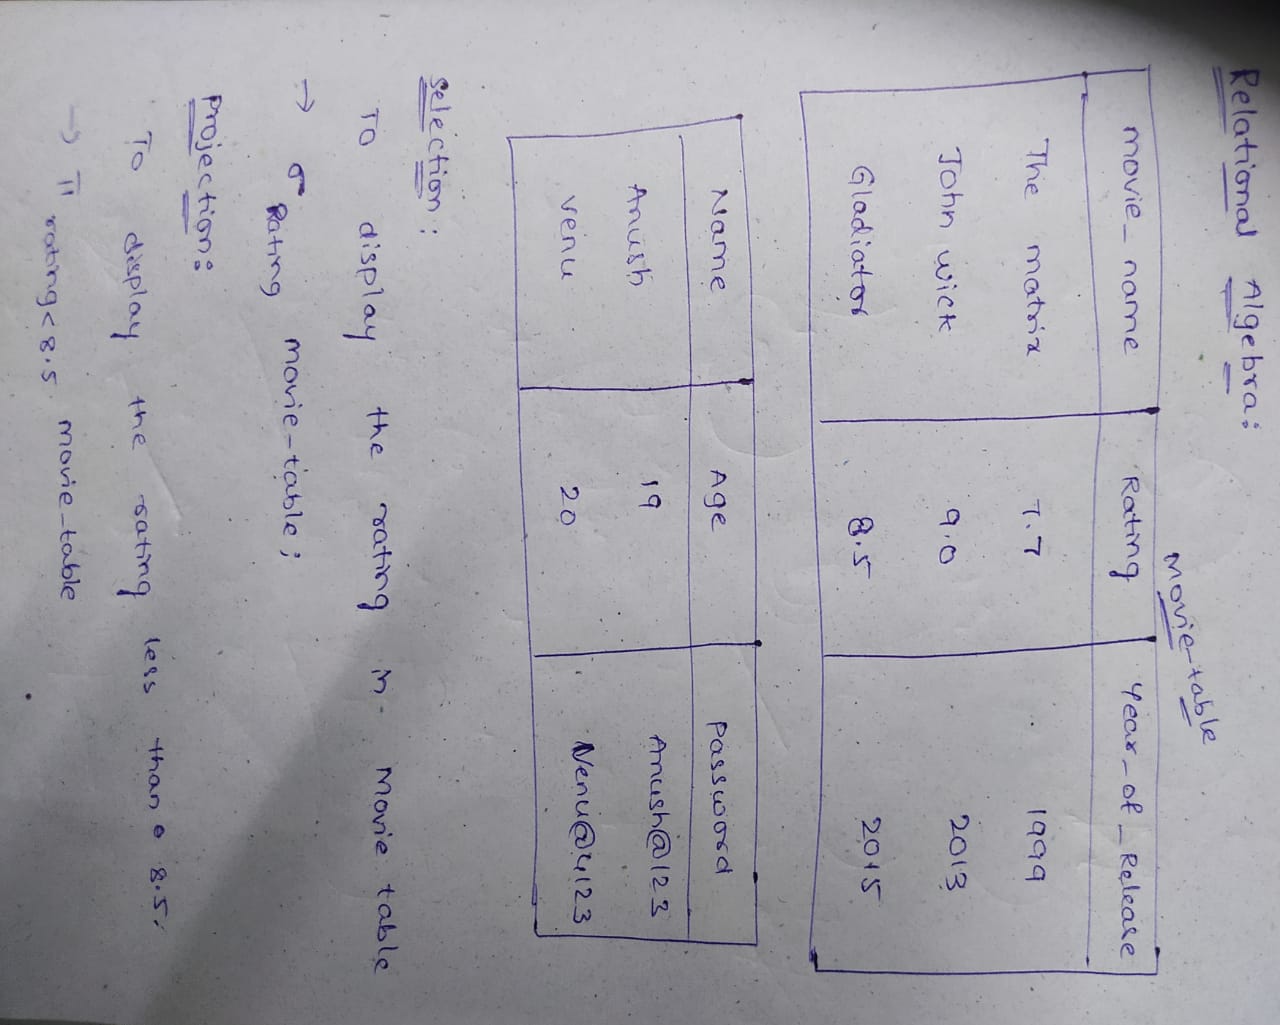 Relational Algebra:
movie-table
movie_name Rating Year_of_Release
The matrix 7.7 1999
John wick 9.0 2013
Gladiator 8.5 2015
Name Age Password
Anush 19 Anush@123
venu 20 Venu@4123
Selection:
To display the rating in Movie table
→ σ Rating movie-table;
Projection:
To display the rating less than 8.5.
→ π rating<8.5 movie_table